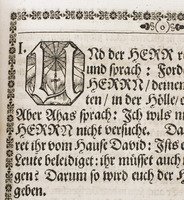 I. UNd der HERR r
und sprach: Ford
HERRN / deinen
ten / in der Hölle / o
Aber Ahas sprach: Ich wils n
HERRN nicht versuche. Da
ret ihr vom Hause David: Ists
Leute beleidiget: ihr müsset auch m
gen? Darum so wird euch der H
geben.